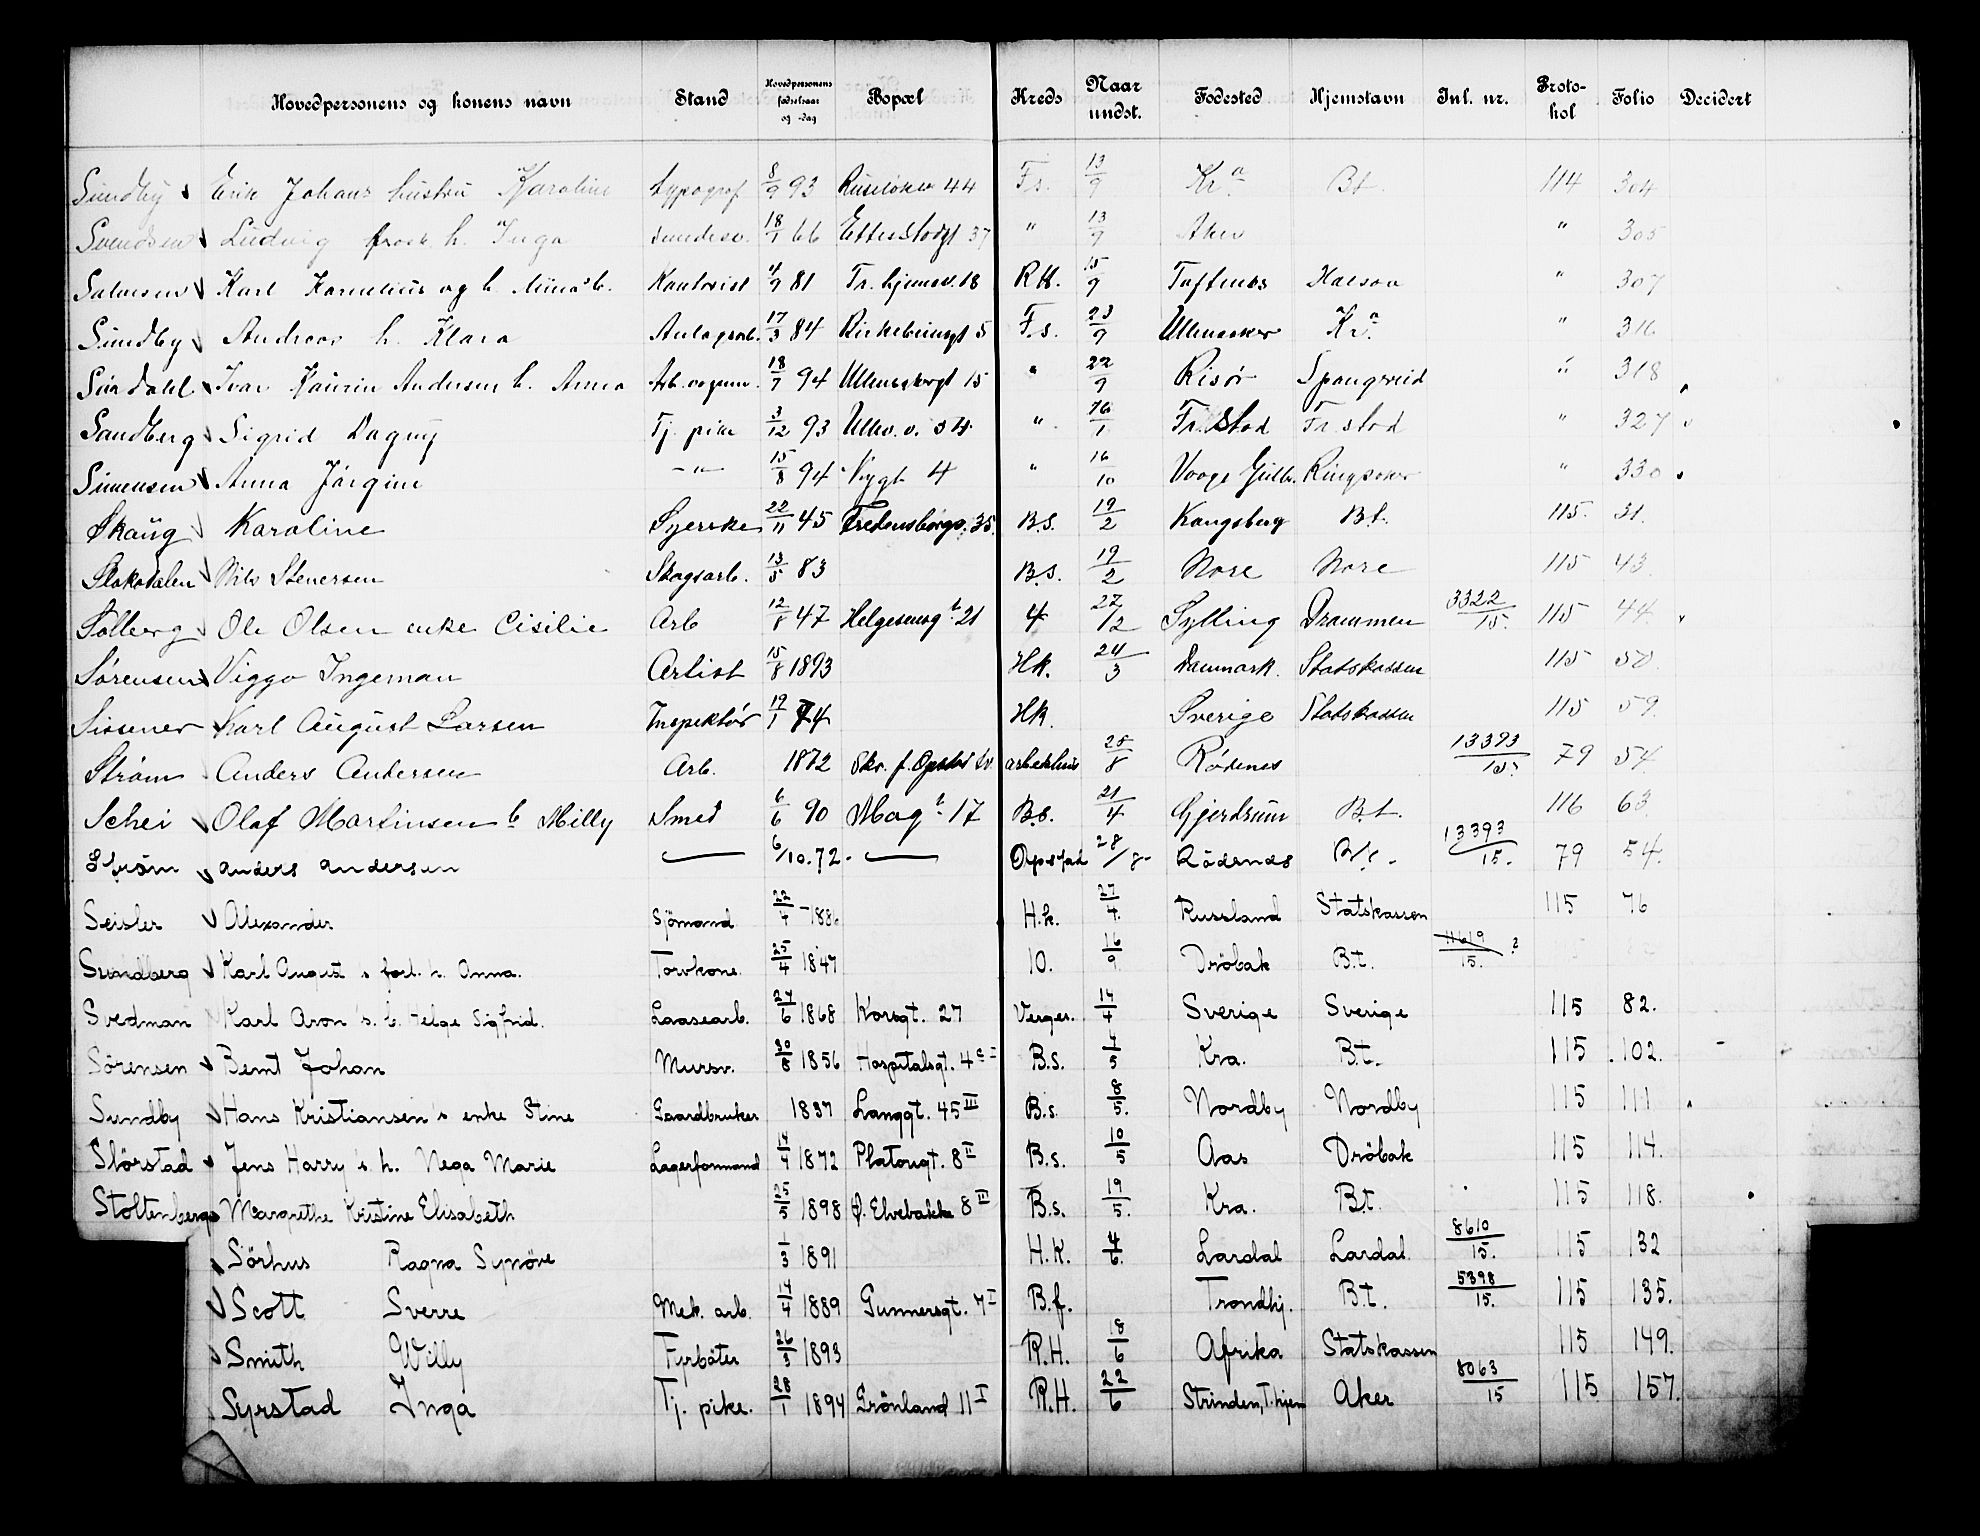 Hovedpersonens og konens navn Stand Hovedpersonens fødselsaar og -dag Bopæl Kreds Naar undst. Fødested Hjemstavn Inl. nr. Protokol Folio Decidert
Sundby Erik Johans hustru Karoline typograf 8/9 93 44 F.s. 13/9 Kr.a B.t. 114 304
Svendsen Ludvig h. Inga 18/1 66 37 " 13/9 Aker " 305
Karl Kornelius og h. 9 81 18 R.H. 15/9 " 307
Sundby Andreas h. Klara 17/3 84 5 F.s. 23/9 Ullensaker Kr.a " 316
Sördahl Ivar Andersen h. Anna 18/7 94 15 " 22/9 Risør " 318
Sandberg Sigrid Dagny Tj. pike 3/12 93 " Fr.stad Fr.stad " 327
Simensen Anna Jörgine -"- 15/8 94 4 " 16/10 Ringsaker " 330
Skaug Karoline Syerske 22/11 45 Fredensborgv. 35 B.S. 19/2 Kongsberg B.t. 115. 31.
Nils Stenersen Skogsarb. 13/5 83 B.S. 19/2 Nore Nore 115 43.
Solberg Ole Olsen enke Cisilie Arb 12/8 47 Helgesensgt 21 4 27/2 Sylling Drammen 3322/15. 115 44.
Sørensen Viggo Ingeman Artist 15/8 1893 Hk. 24/3 Danmark. Statskassen 115 50.
Sissener Karl August Larsen Inspektör 19/1 74 Hk. Sverige Statskassen 115 59.
Strøm Anders Andersen Arb. 1872 28/8 Rödenes 13393/15. 79 54.
Schei Olaf Martinsen h. Milly Smed 6/6 90 17 B.s. 21/4 Gjerdrum B.t. 116 63.
Ström anders andersen — 6/10.72. — Opsstad 28/8 Rödenes B.t. 13393/15. 79 54.
Seisler Alexander Sjömand 22/4 - 1886 H.k. 27/4. Russland Statskassen 115 76
Sundberg Karl August s forl. h. Anna. 25/4 1847 10. 16/9 Dröbak B.t. 11619/15. ?
Svedman Karl Aron 's. h. Helge Sigfrid. 24/6 1868 Korsgt. 27 Verges. 14/4 Sverige Sverige 115 82.
Sörensen Bernt Johan Mursv. 30/8 1856 Hospitalsgt. 4c I B.s. 4/5 Kra. B.t. 115 102.
Sundby Hans Kristiansen's enke Stine Gaardbruker 1837 Langgt. 45 III B.s. 8/5. Nordby Nordby 115 111
Störstad Jens Harry's h. Nega Marie Lagerformand 14/4 1872 Platougt. 8 II B.s. 10/5 Aas Dröbak 115 114.
Stoltenberg Margrethe Kristine Elisabeth 25/5 1898 Ø. Elvebakke 8 III B.s. 19/5. Kra. B.t. 115 118.
Sörhus Ragna Synöve 1/3 1891 H.K. 4/6. Lardal Lardal 8610/15. 115 132
Scott Sverre Mek. arb. 14/4 1889 Gunnersgt. 7 I B.f. Trondhj. B.t. 5398/15. 115 135.
Smith Willy Fyrböter 26/3 1893 R.H. 18/6 Afrika Statskassen 115 149.
Syrstad Inga Tj. pike. 28/1 1894 Grönland 11 I R.H. 22/6 Strinden, T.hjem Aker 8063/15 115 157.